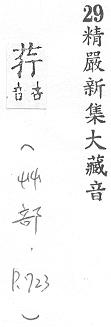 29精嚴新集大藏音
荇
杏音
（艸部．P.723）